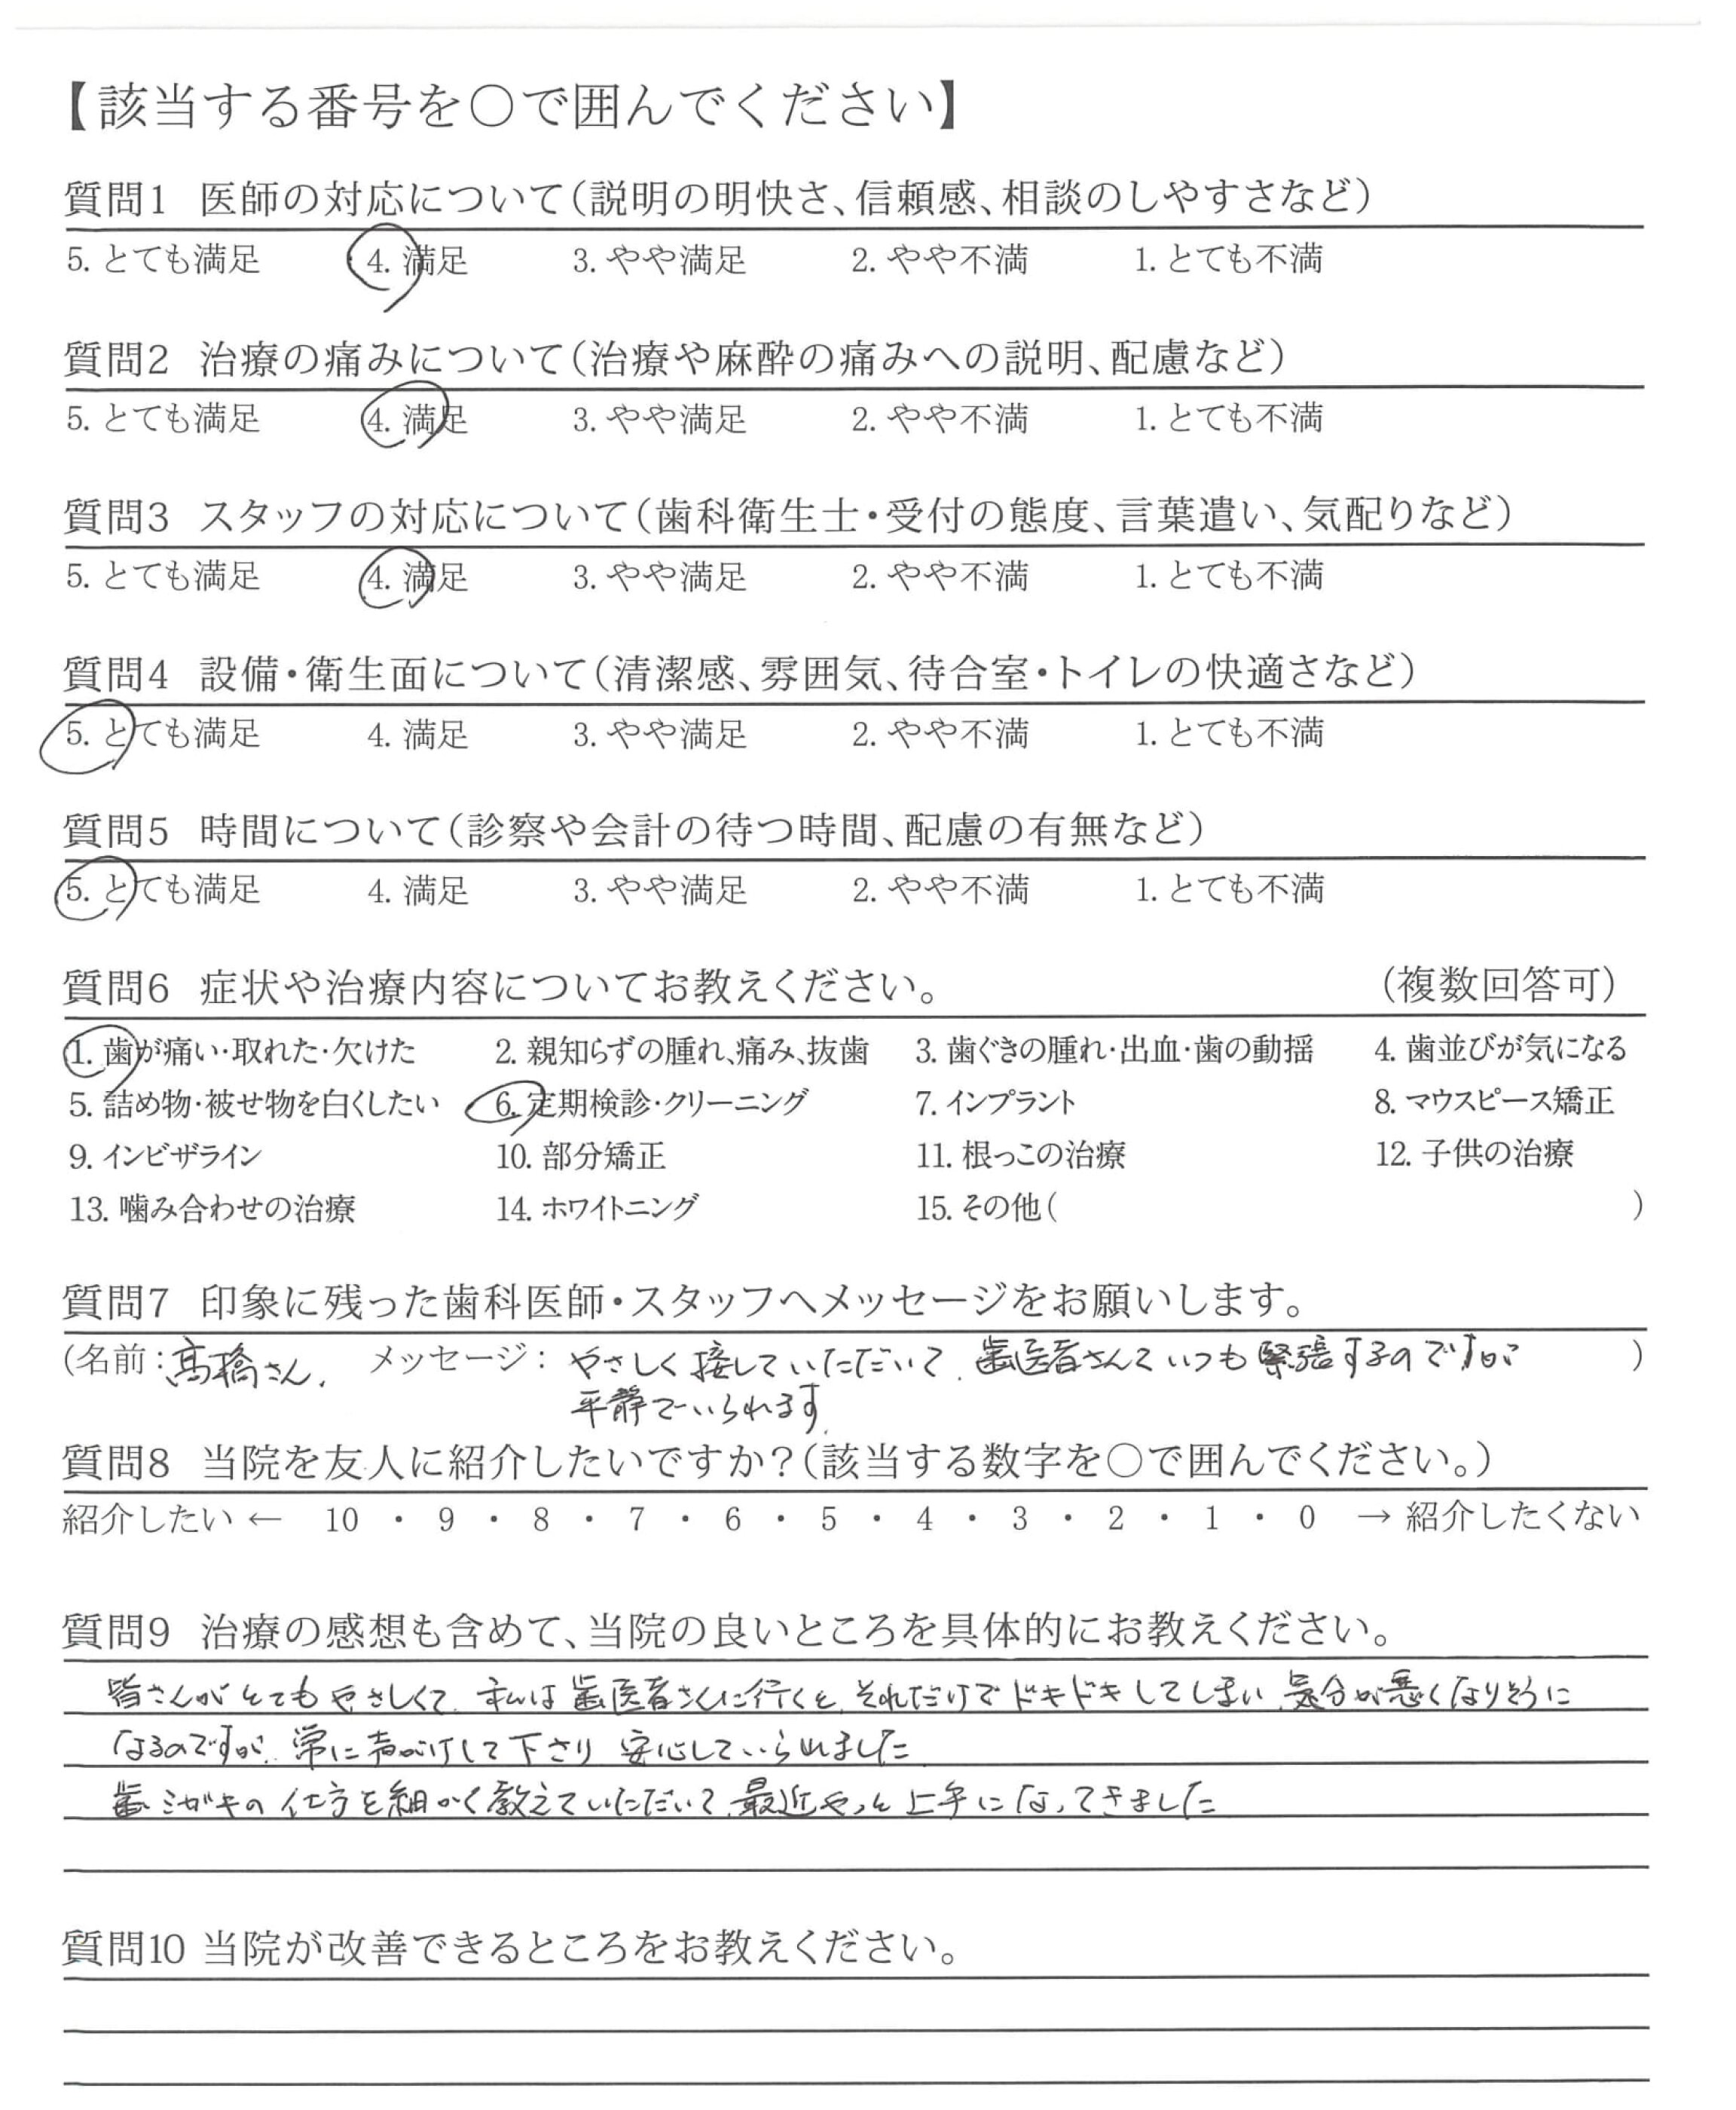 【該当する番号を〇で囲んでください】
質問1 医師の対応について(説明の明快さ、信頼感、相談のしやすさなど)
5. とても満足 4. 満足 3. やや満足 2. やや不満 1. とても不満
質問2 治療の痛みについて(治療や麻酔の痛みへの説明、配慮など)
5. とても満足 4. 満足 3. やや満足 2. やや不満 1. とても不満
質問3 スタッフの対応について(歯科衛生士・受付の態度、言葉遣い、気配りなど)
5. とても満足 4. 満足 3. やや満足 2. やや不満 1. とても不満
質問4 設備・衛生面について(清潔感、雰囲気、待合室・トイレの快適さなど)
5. とても満足 4. 満足 3. やや満足 2. やや不満 1. とても不満
質問5 時間について(診察や会計の待つ時間、配慮の有無など)
5. とても満足 4. 満足 3. やや満足 2. やや不満 1. とても不満
質問6 症状や治療内容についてお教えください。 (複数回答可)
1. 歯が痛い・取れた・欠けた 2. 親知らずの腫れ、痛み、抜歯 3. 歯ぐきの腫れ・出血・歯の動揺 4. 歯並びが気になる
5. 詰め物・被せ物を白くしたい 6. 定期検診・クリーニング 7. インプラント 8. マウスピース矯正
9. インビザライン 10. 部分矯正 11. 根っこの治療 12. 子供の治療
13. 噛み合わせの治療 14. ホワイトニング 15. その他( )
質問7 印象に残った歯科医師・スタッフへメッセージをお願いします。
(名前:高橋さん. メッセージ: やさしく接していただいて、歯医者さんていつも緊張するのですが )
平静でいられます.
質問8 当院を友人に紹介したいですか?(該当する数字を〇で囲んでください。)
紹介したい ← 10 ・ 9 ・ 8 ・ 7 ・ 6 ・ 5 ・ 4 ・ 3 ・ 2 ・ 1 ・ 0 → 紹介したくない
質問9 治療の感想も含めて、当院の良いところを具体的にお教えください。
皆さんがとてもやさしくて、私は歯医者さんに行くと、それだけでドキドキしてしまい、気分が悪くなりそうに
なるのですが、常に声がけして下さり 安心していられました
歯ミガキの仕方を細かく教えていただいて、最近やっと上手になってきました
質問10 当院が改善できるところをお教えください。